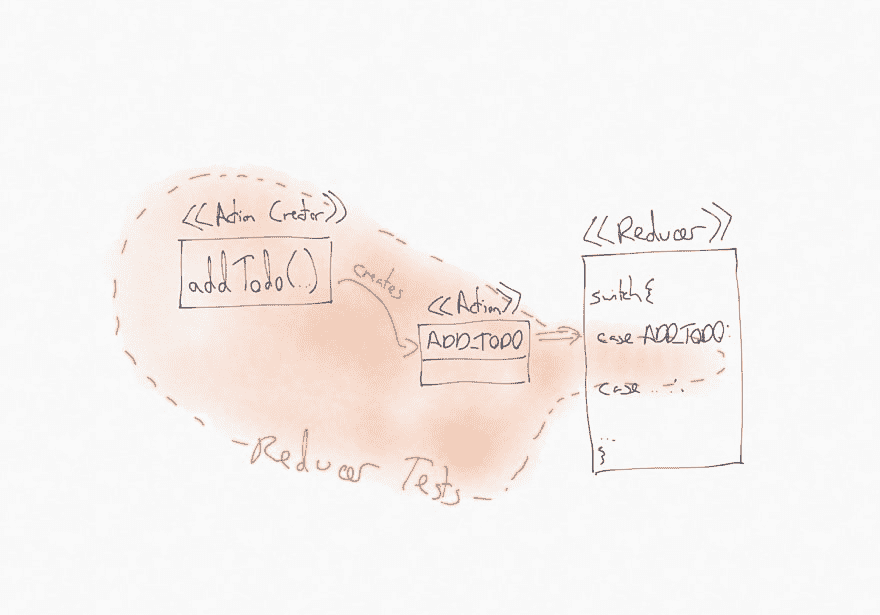 <<Action Creator>>
addTodo(...)
creates
<<Action>>
ADD_TODO
<<Reducer>>
switch{
case ADD_TODO:
case ...:
...
}
- Reducer Tests -